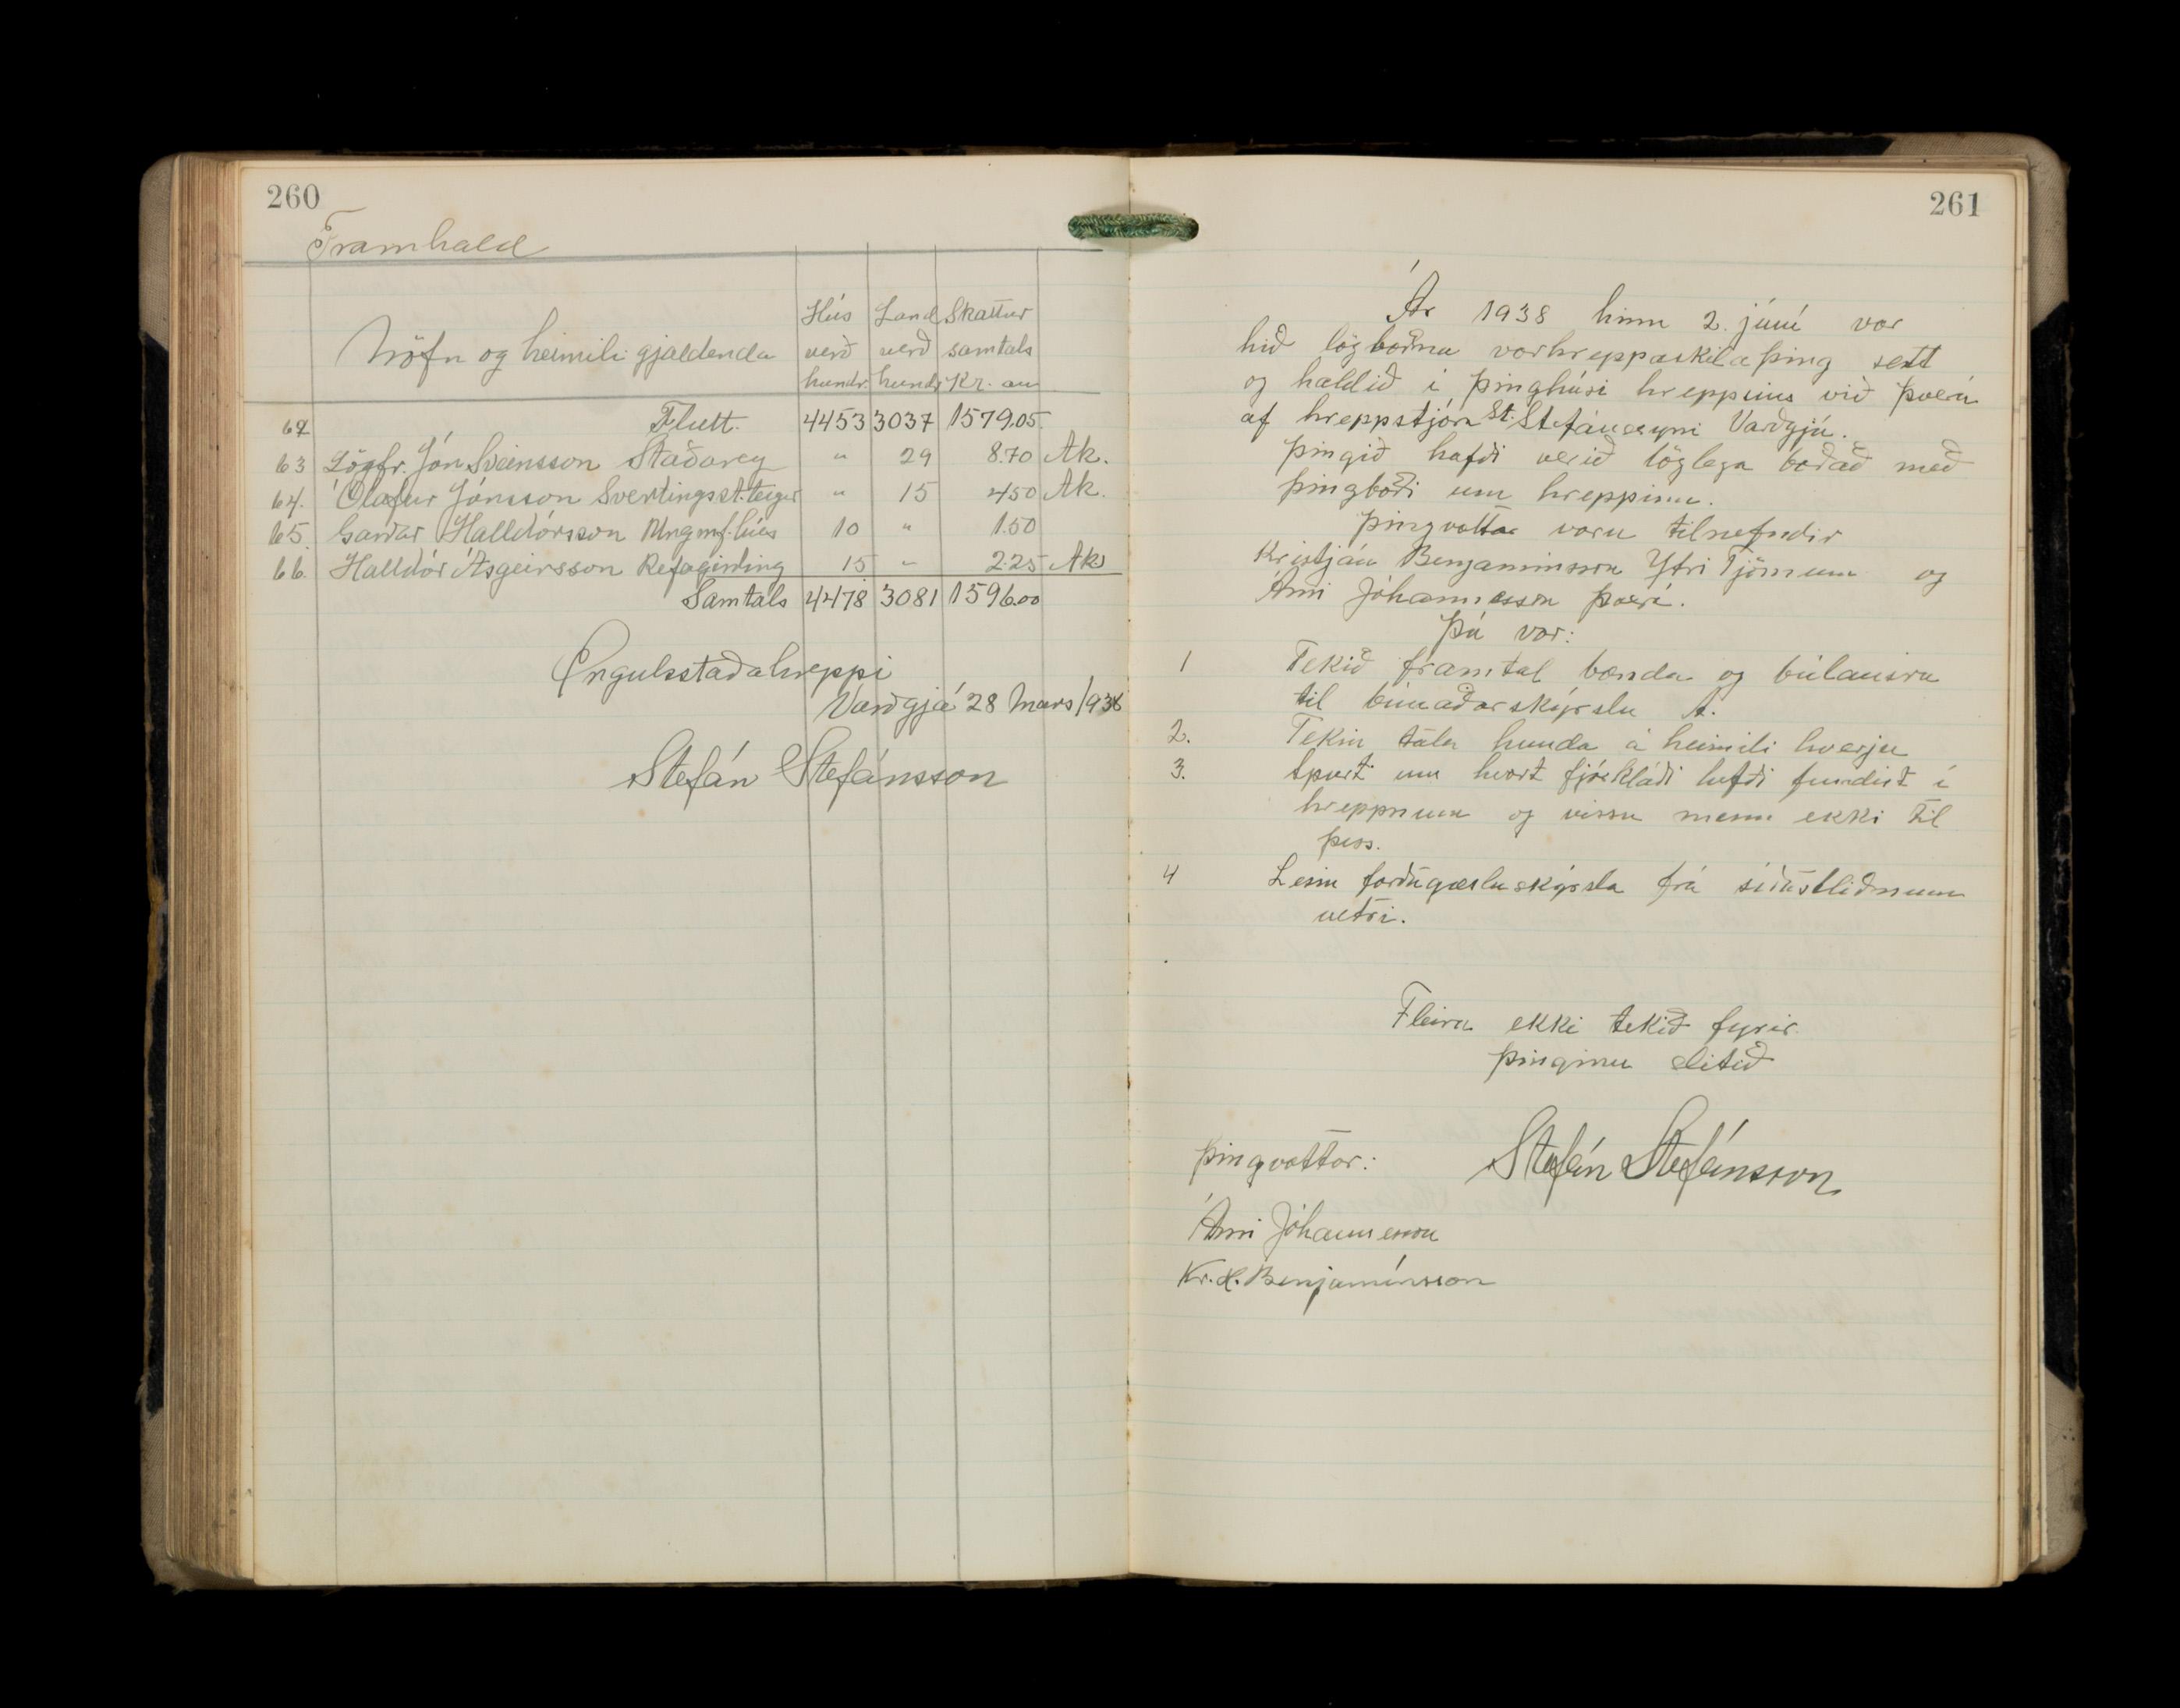 260
Framhald
Nöfn og heimili gjaldenda
Hús verð hundr.
Land verð hundr
Skattur samtals Kr. au
62 Flutt. 4453 3037 1579.05
63 Lögfr. Jón Sveinsson Staðarey " 29 8.70 Ak.
64. Ólafur Jónsson Svertingsst.teigur " 15 450 Ak.
65. Garðar Halldórsson Ungmf.hús 10 " 1.50
66. Halldór Ásgeirsson Refagirðing 15 " 2.25 Ak
Samtals 4478 3081 1596.00
Öngulsstaðahreppi
Varðgjá 28 Mars 1938
Stefán Stefánsson
261
Ár 1938 hinn 2. júní var
hið lögboðna vorhreppaskilaþing sett
og haldið í þinghúsi hreppsins við Þverá
af hreppstjóra St. Stefánssyni Varðgjá.
Þingið hafði verið löglega boðað með
þingboði um hreppinn.
Þingvottar voru tilnefndir
Kristján Benjaminsson Ytri Tjörnum og
Árni Jóhannesson Þverá.
Þá var:
1 Tekið framtal bænda og búlausra
til búnaðarskýrslu A.
2. Tekin tala hunda á heimili hverju
3. Spurt um hvort fjárkláði hefði fundist í
hreppnum og vissu menn ekki til
þess.
4 Lesin forðagæsluskýrsla frá síðastliðnum
vetri.
Fleira ekki tekið fyrir.
Þinginu slitið
Þingvottar: Stefán Stefánsson
Árni Jóhannesson
Kr. H. Benjamínsson